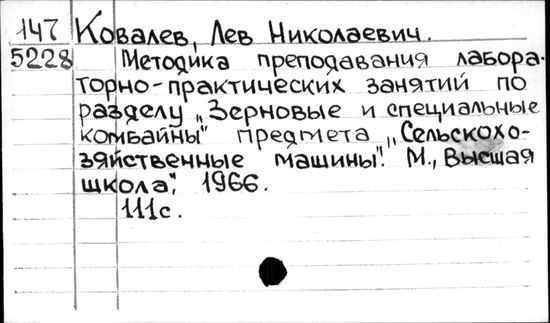 147 Ковалев, Лев Николаевич.
5228 Методика преподавания лабора-
торно-практических занятий по
разделу „Зерновые и специальные
комбайны" предмета „Сельскохо-
зяйственные машины". М., „Высшая
школа", 1966.
111с.